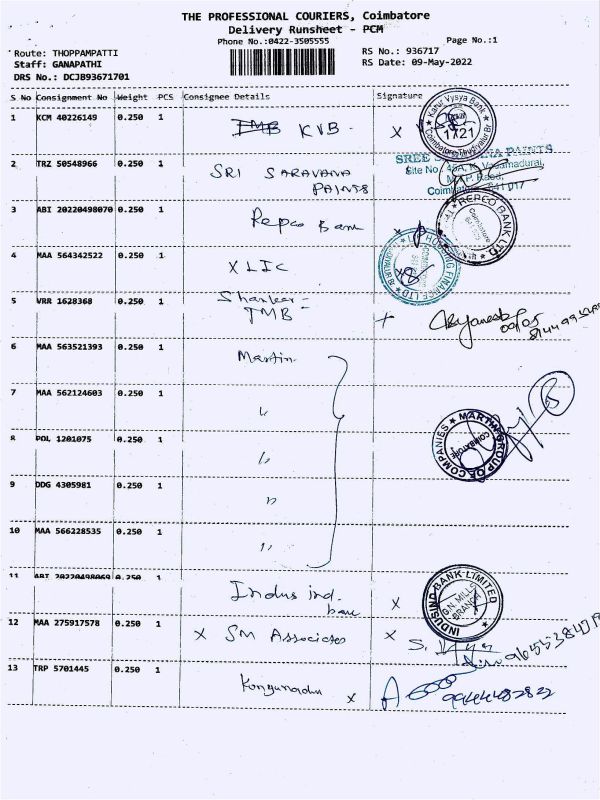 THE PROFESSIONAL COURIERS, Coimbatore
Delivery Runsheet - PCM
Phone No.:0422-3505555
Page No.:1
Route: THOPPAMPATTI
Staff: GANAPATHI
DRS No.: DCJB93671701
RS No.: 936717
RS Date: 09-May-2022
S No Consignment No Weight PCS Consignee Details Signature
1 KCM 40226149 0.250 1 TMB KVB- X
Karur Vysya Bank
1721
2 TRZ 50548966 0.250 1 SRI SARAVANA
PAINTS
SREE PAINTS
Site No
Coimbatore 641 017
3 ABI 20220498070 0.250 1 Repco Bank
REPCO BANK LTD
Coimbatore
4 MAA 564342522 0.250 1 X LIC
LIC HOUSING FINANCE LTD
5 VRR 1628368 0.250 1 Shankar-
TMB
6 MAA 563521393 0.250 1 Martin
7 MAA 562124603 0.250 1 "
8 POL 1201075 0.250 1 "
MARTIN GROUP OF COMPANIES
COIMBATORE
9 DDG 4305981 0.250 1 "
10 MAA 566228535 0.250 1 "
11 ABI 20220498069 0.250 1 Indus ind.
bank X
INDUSIND BANK LIMITED
G.N. MILLS
BRANCH
12 MAA 275917578 0.250 1 X SM Associates X
13 TRP 5701445 0.250 1 Kongunadu X